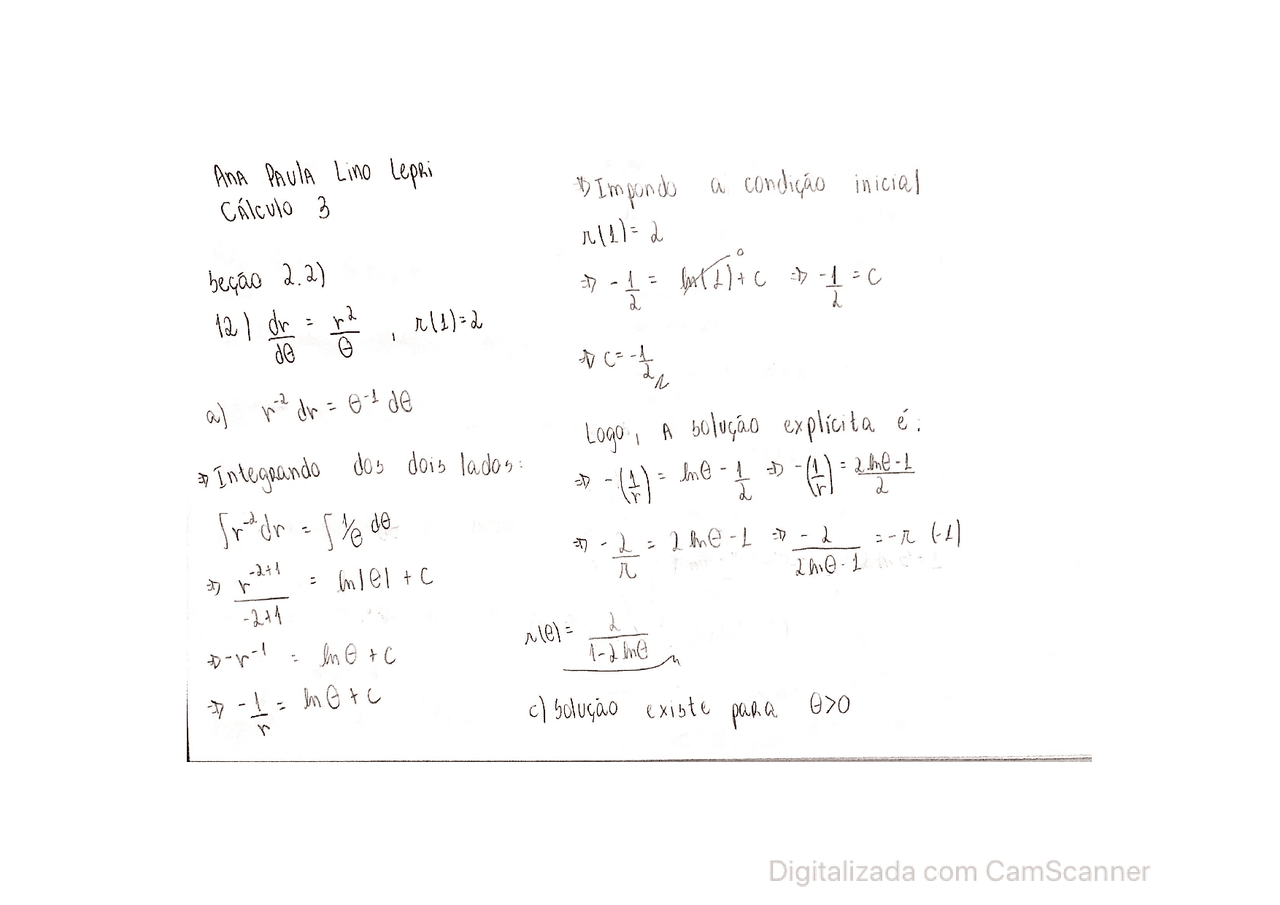 Ana Paula Lino Lepri
Cálculo 3
Seção 2.2)
12) dr/dθ = r²/θ , r(1)=2
a) r⁻² dr = θ⁻¹ dθ
⇒ Integrando dos dois lados:
∫r⁻²dr = ∫1/θ dθ
⇒ r⁻²⁺¹/-2+1 = ln|θ| + C
⇒ -r⁻¹ = lnθ + C
⇒ -1/r = lnθ + C
⇒ Impondo a condição inicial
r(1) = 2
⇒ -1/2 = ln(1)⁰ + C ⇒ -1/2 = C
⇒ C = -1/2
Logo, a solução explícita é:
⇒ -(1/r) = lnθ - 1/2 ⇒ -(1/r) = 2lnθ-1/2
⇒ -2/r = 2lnθ-1 ⇒ -2/2lnθ-1 = -r (-1)
r(θ) = 2/1-2lnθ
c) Solução existe para θ>0
Digitalizada com CamScanner